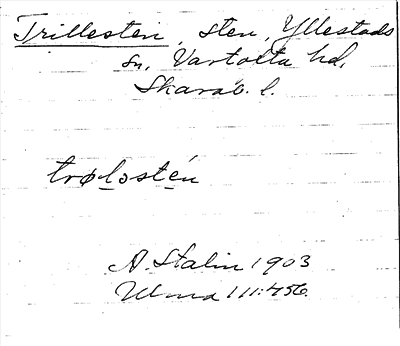 Trillesten, sten, Yllestads
sn, Vartofta hd,
Skarab. l.
trøləstén
A. Stalin 1903
Ulma 111:456.